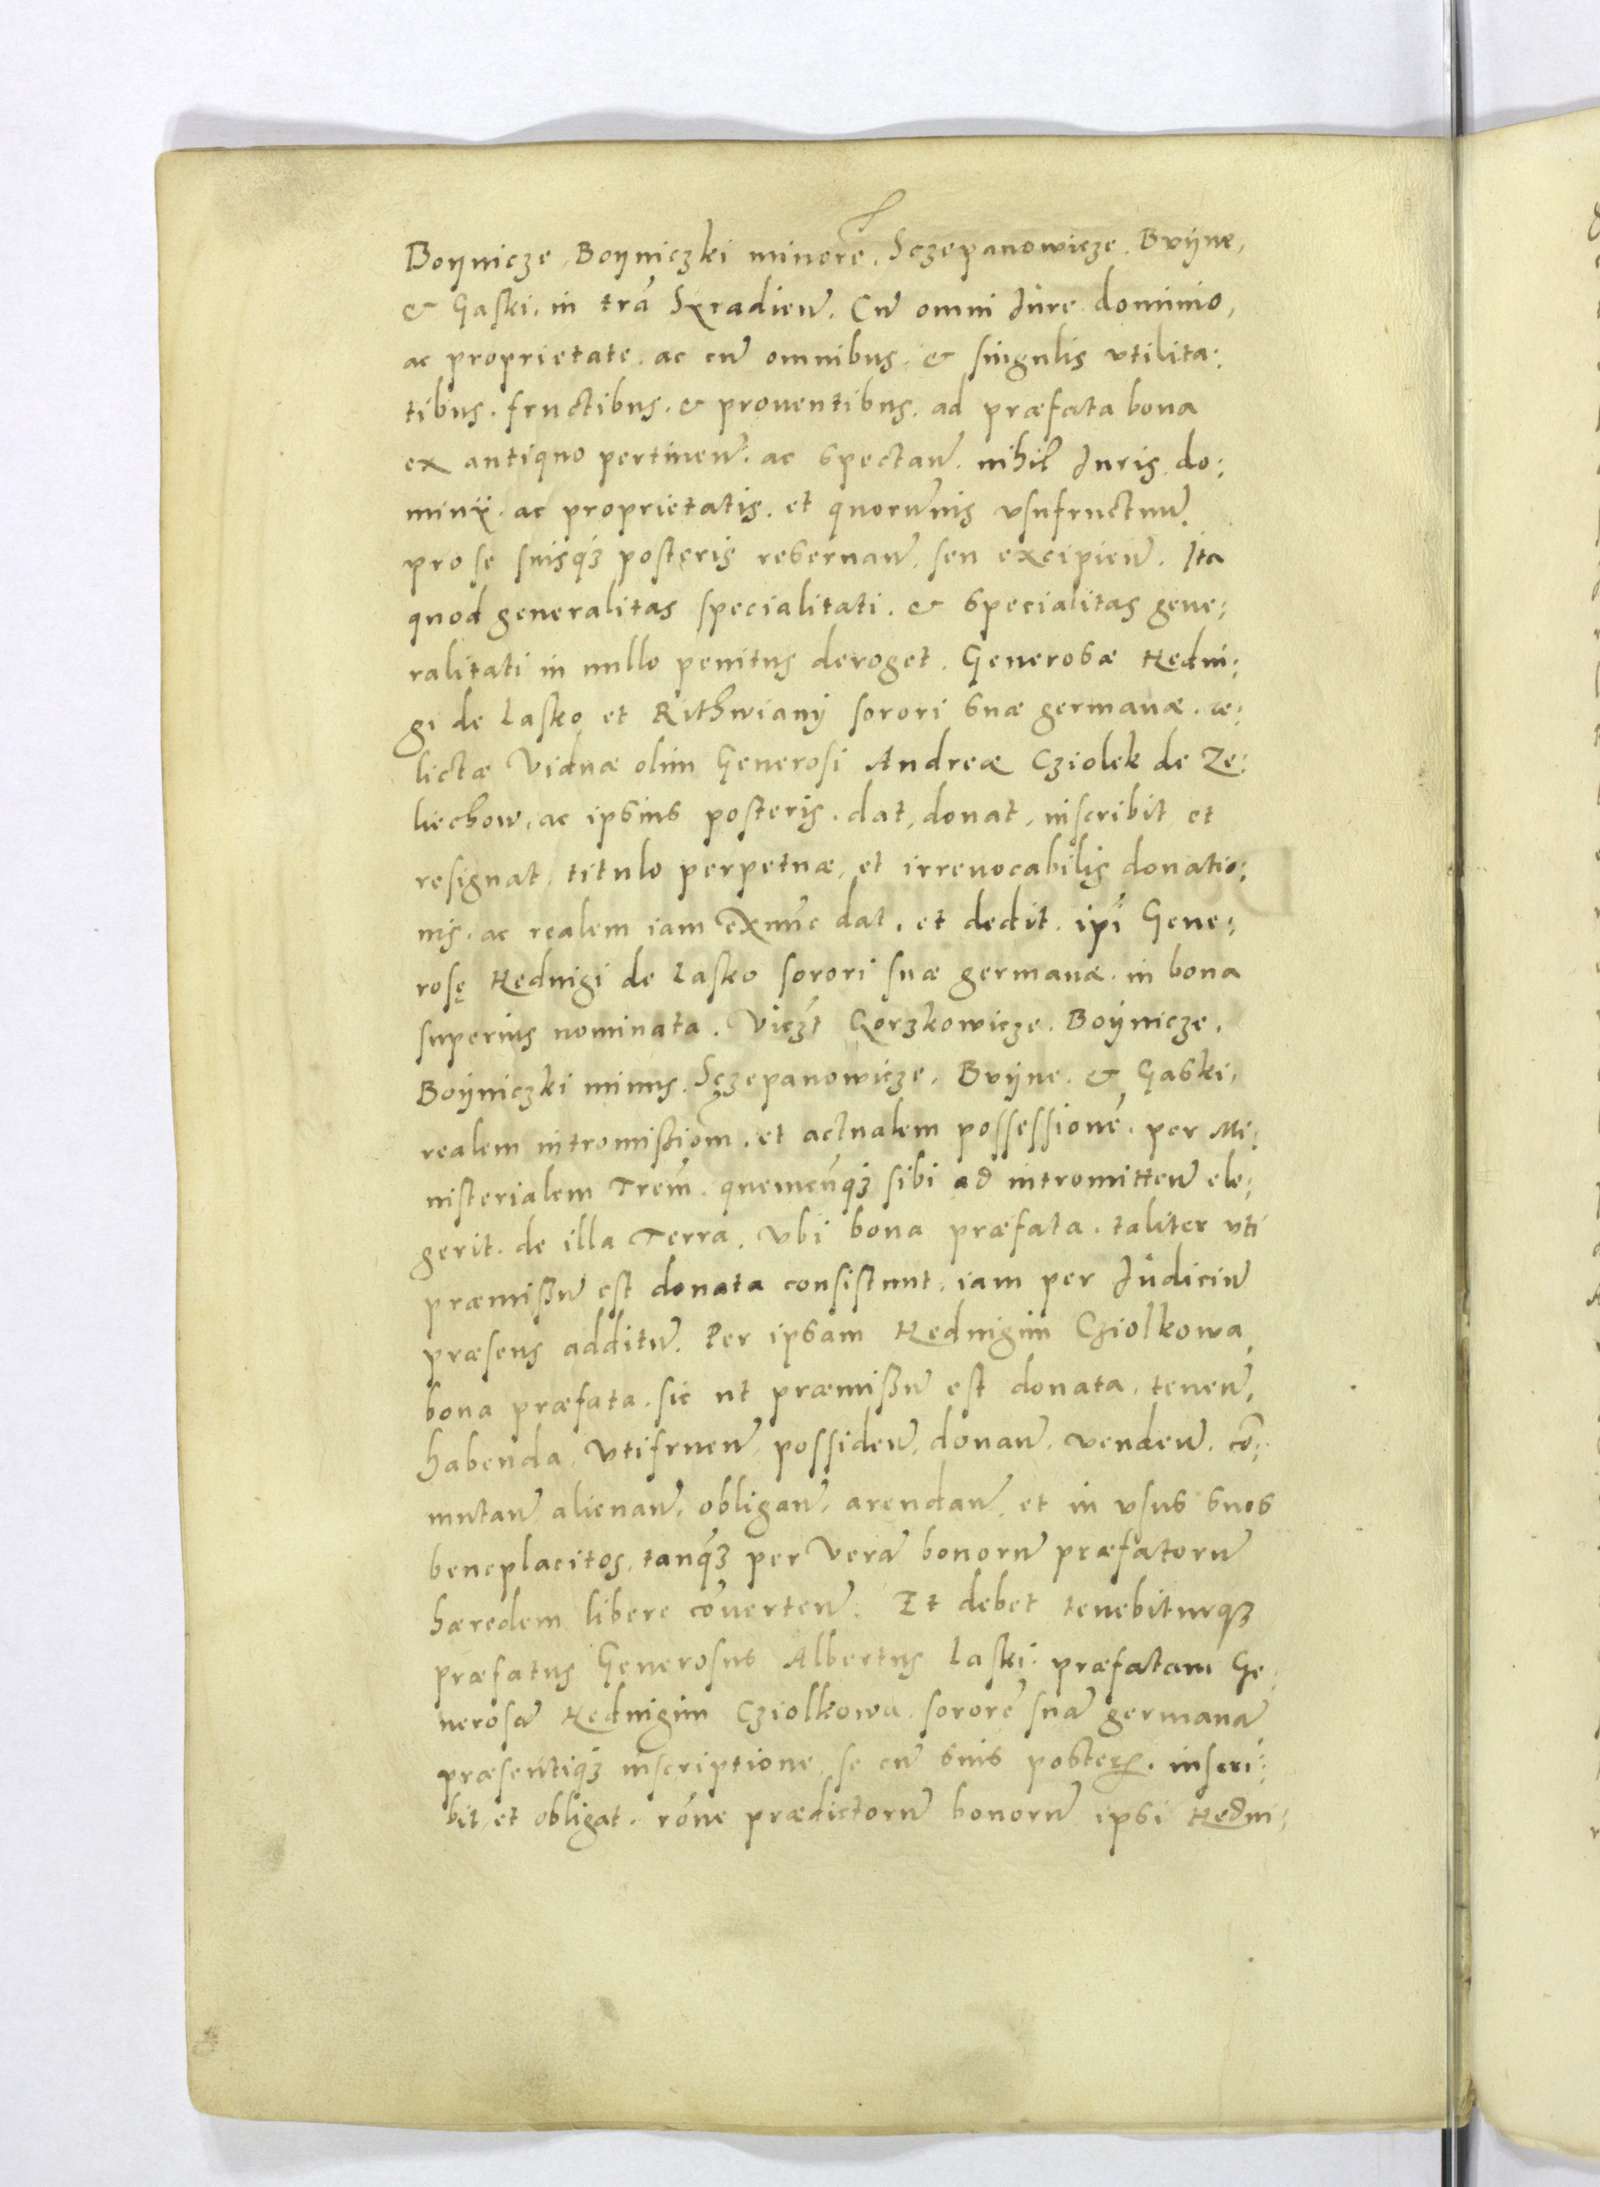 Boijnicze, Boijniczki minore, Sczepanowicze, Brijne,
& Gaski, in trā Syradień. Cū omni Jure dominio,
ac proprietate, ac cū omnibus, & singulis vtilita:
tibus, fructibus, & prouentibus, ad præfata bona
ex antiquo pertineñ, ac spectañ, nihil Juris, do:
minij, ac proprietatis, et quorūuis vsufructuū,
pro se suisq3 posteris reseruañ, seu excipieñ. Ita
quod generalitas specialitati, & specialitas gene:
ralitati in nullo penitus deroget. Generosæ Hedui:
gi de Lasko et Rithwianij sorori suæ germanæ, re:
lictæ Viduæ olim Generosi Andreæ Cziolek de Ze:
liechow, ac ipsius posteris, dat, donat, inscribit et
resignat, titulo perpetuæ, et irreuocabilis donatio:
nis, ac realem iam exnūc dat, et dedit, ipī Gene:
rosę Heduigi de Lasko sorori suæ germanæ, in bona
superius nominata. Viczt Gorzkowicze, Boijnicze,
Boijniczki minus, Sczepanowicze, Brijne, & Gaski,
realem intromissiom, et actualem possessionē, per Mi:
nisterialem Trēm, quemcūq3 sibi ad intromitteñ ele:
gerit, de illa Terra, Vbi bona præfata, taliter vti
præmissū est donata consistunt, iam per Judiciū
præsens additū. Per ipsam Heduigim Cziolkowa,
bona præfata, sic ut præmissū est donata, teneñ,
habenda, Vtifrueñ, possideñ, donañ, vendeñ, cō:
mutañ alienañ, obligañ, arendañ, et in vsus suos
beneplacitos, tanq3 per Verū bonorū præfatorū
hæredem libere cōuerteñ. Et debet tenebiturq3
præfatus Generosus Albertus Laski præfatam Ge:
nerosā Heduigim Cziolkowa, sororē suā germanā
præsentiq3 inscriptione, se cū suis posteris, inscri:
bit, et obligat, rōne prædictorū bonorū ipsi Hedui: